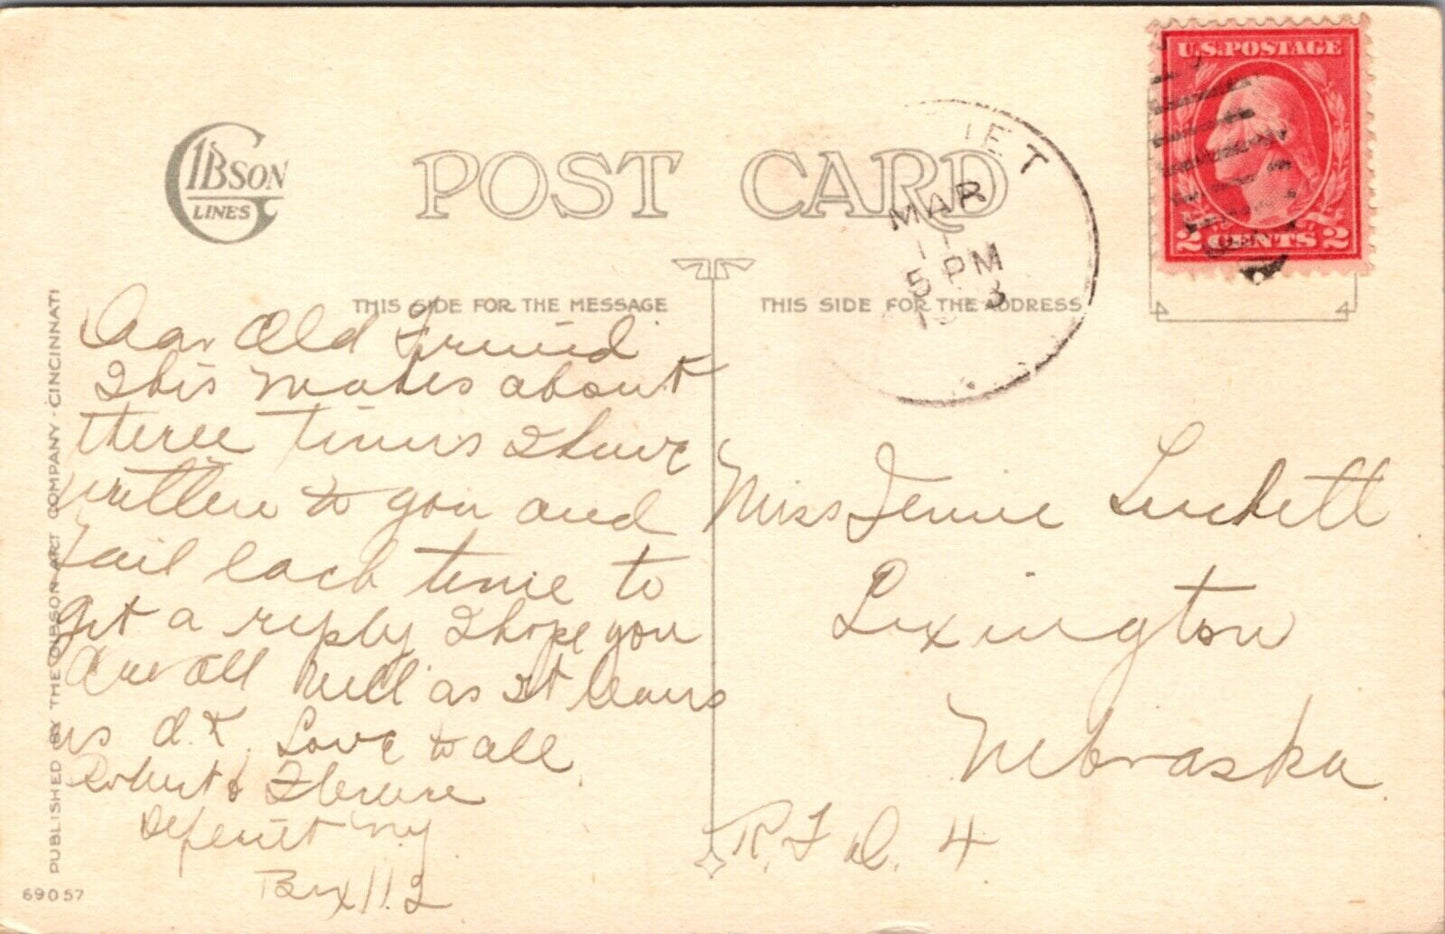 U.S. POSTAGE
2 CENTS 2
GIBSON
LINES
POST CARD
IET
MAR
11
5 PM
THIS SIDE FOR THE MESSAGE
THIS SIDE FOR THE ADDRESS
Dear Old Friend
This makes about
theree times I have
written to you and
fail each time to
get a reply I hope you
are all well as It leaves
us O.K. Love to all
Robert & Florence
Deferiet N.Y.
Box 112
Miss Jennie Luckett
Lexington
Nebraska
R.F.D. 4
PUBLISHED BY THE GIBSON ART COMPANY - CINCINNATI
69057